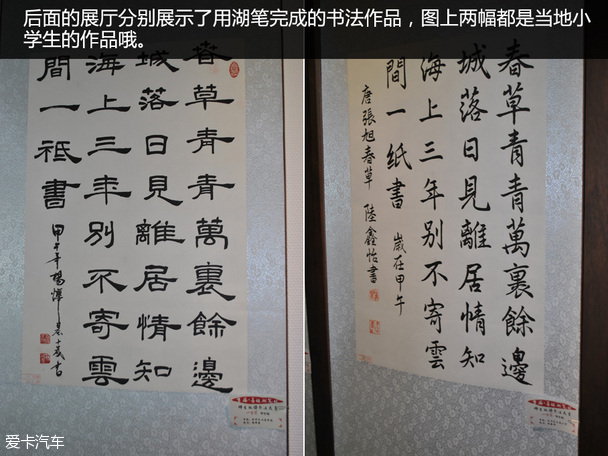 后面的展厅分别展示了用湖笔完成的书法作品，图上两幅都是当地小
学生的作品哦。
春草青青萬裏餘邊
城落日見離居情知
海上三年別不寄雲
間一祗書
甲午年楊
春草青青萬裏餘邊
城落日見離居情知
海上三年別不寄雲
間一纸書
歲在甲午
唐張旭春草 陸鑫怡書
爱卡汽车